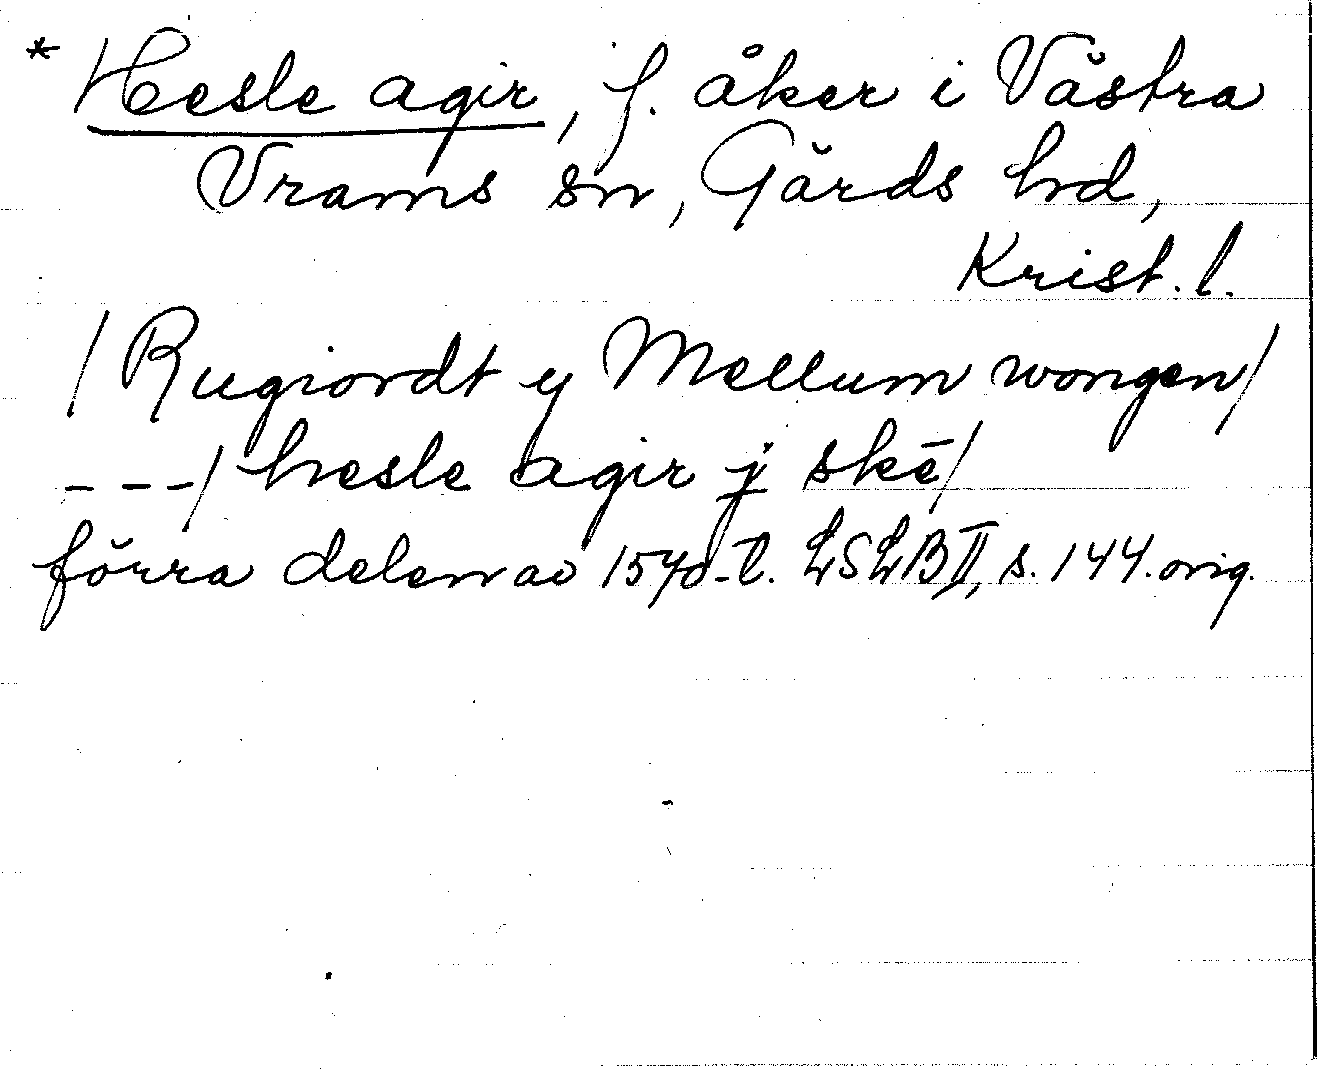 * Hesle agir, f. åker i Västra
Vrams sn, Gärds hd,
Krist. l.
/Rugiordt y Mellum wongen/
---/ hesle agir j skē/
förra delen av 1570-t. LSLB II, s. 144. orig.